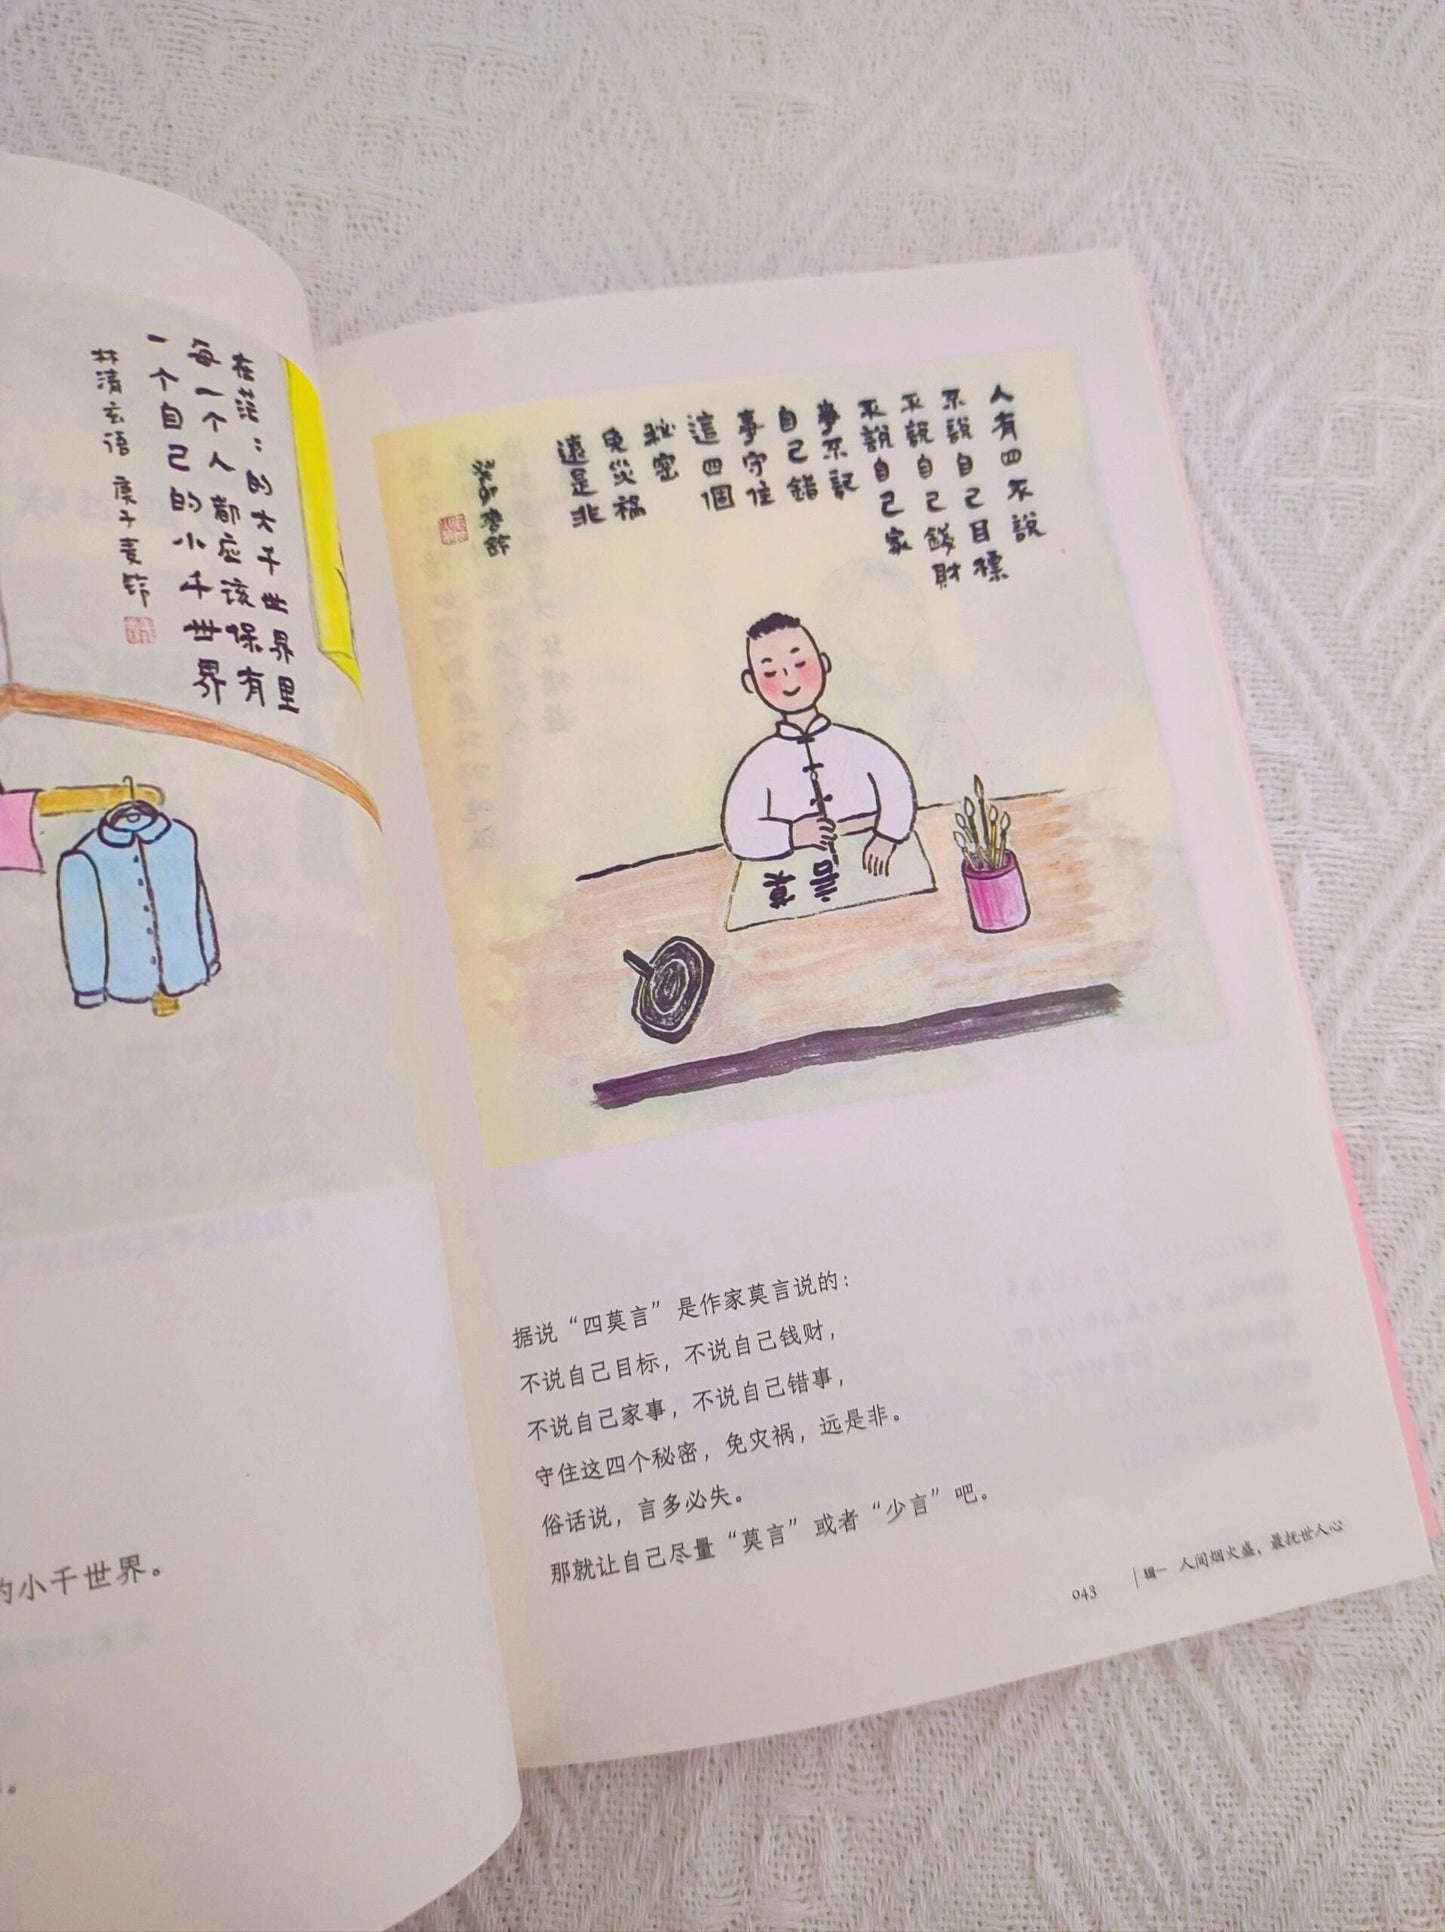 在茫：的大千世界里
每一个人都应该保有
一个自己的小千世界
林清玄语 庚子麦铃
的小千世界。
人有四不說
不說自己目標
不說自己錢財
不說自己家
事不説
自己錯
事守住
這四個
秘密
免災禍
遠是非
莫言
据说“四莫言”是作家莫言说的：
不说自己目标，不说自己钱财，
不说自己家事，不说自己错事，
守住这四个秘密，免灾祸，远是非。
俗话说，言多必失。
那就让自己尽量“莫言”或者“少言”吧。
043
辑一 人间烟火盛，最扰世人心